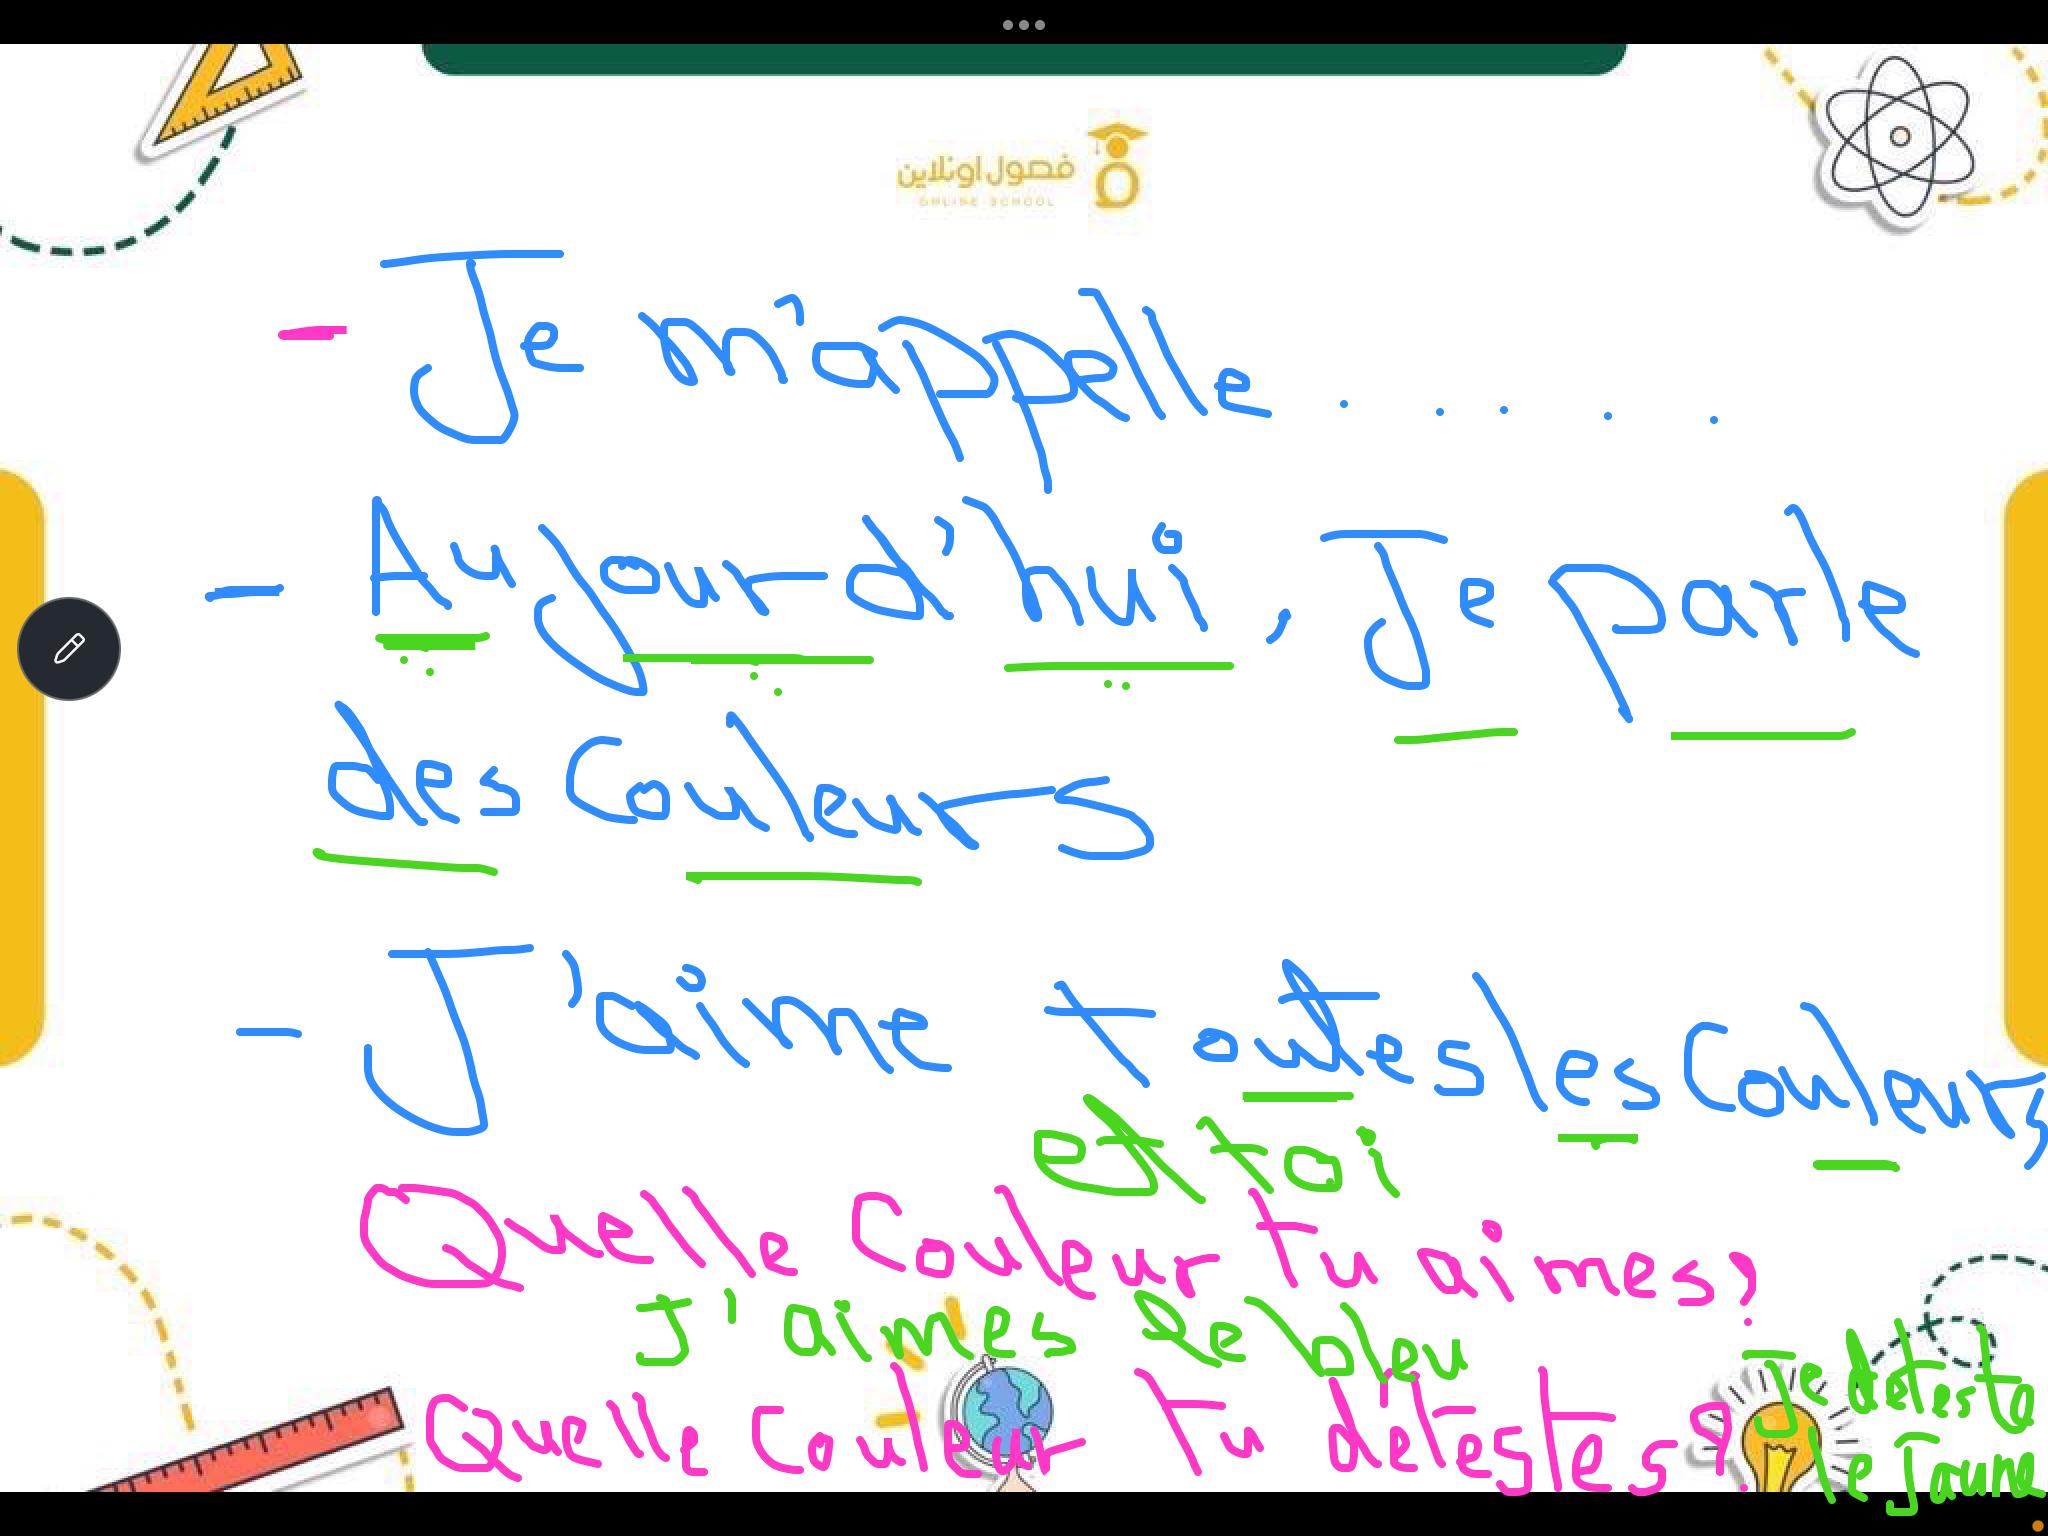 فصول اونلاين
ONLINE SCHOOL
- Je m'appelle . . . . .
- Aujourd'hui, Je parle
des Couleurs
- J'aime toutes les Couleurs,
et toi
Quelle Couleur tu aimes?
J'aimes le bleu
Quelle Couleur tu détestes?
Je déteste
le Jaune